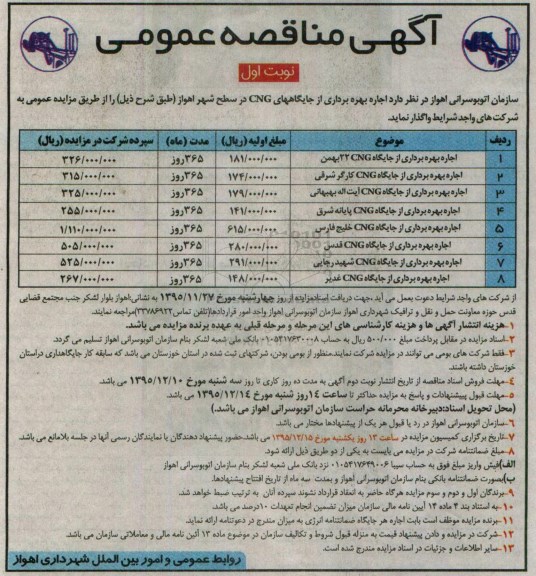 آگهی مناقصه عمومی
نوبت اول
سازمان اتوبوسرانی اهواز در نظر دارد اجاره بهره برداری از جایگاههای CNG در سطح شهر اهواز (طبق شرح ذیل) را از طریق مزایده عمومی به
شرکت های واجد شرایط واگذار نماید.
ردیف موضوع مبلغ اولیه (ریال) مدت (ماه) سپرده شرکت در مزایده (ریال)
۱ اجاره بهره برداری از جایگاه CNG ۲۲بهمن ۱۸۱/۰۰۰/۰۰۰ ۳۶۵روز ۳۲۶/۰۰۰/۰۰۰
۲ اجاره بهره برداری از جایگاه CNG کارگر شرقی ۱۷۴/۰۰۰/۰۰۰ ۳۶۵روز ۳۱۵/۰۰۰/۰۰۰
۳ اجاره بهره برداری از جایگاه CNG آیت اله بهبهانی ۱۷۹/۰۰۰/۰۰۰ ۳۶۵روز ۳۲۵/۰۰۰/۰۰۰
۴ اجاره بهره برداری از جایگاه CNG پایانه شرق ۱۴۱/۰۰۰/۰۰۰ ۳۶۵روز ۲۵۵/۰۰۰/۰۰۰
۵ اجاره بهره برداری از جایگاه CNG خلیج فارس ۶۱۵/۰۰۰/۰۰۰ ۳۶۵روز ۱/۱۱۰/۰۰۰/۰۰۰
۶ اجاره بهره برداری از جایگاه CNG قدس ۲۸۰/۰۰۰/۰۰۰ ۳۶۵روز ۵۰۵/۰۰۰/۰۰۰
۷ اجاره بهره برداری از جایگاه CNG شهید رجایی ۲۹۱/۰۰۰/۰۰۰ ۳۶۵روز ۵۲۵/۰۰۰/۰۰۰
۸ اجاره بهره برداری از جایگاه CNG غدیر ۱۴۸/۰۰۰/۰۰۰ ۳۶۵روز ۲۶۷/۰۰۰/۰۰۰
از شرکت های واجد شرایط دعوت بعمل می آید ،جهت دریافت اسناد مزایده از روز چهارشنبه مورخ ۱۳۹۵/۱۱/۲۷ به نشانی:اهواز بلوار لشکر جنب مجتمع قضایی
قدس حوزه معاونت حمل و نقل و ترافیک شهرداری اهواز سازمان اتوبوسرانی اهواز واحد امور قراردادها(تلفن تماس۳۳۷۸۶۹۲۲)مراجعه نمایند.
۱-هزینه انتشار آگهی ها و هزینه کارشناسی های این مرحله و مرحله قبلی به عهده برنده مزایده می باشد.
۲-اسناد مزایده در مقابل پرداخت مبلغ ۵۰۰/۰۰۰ ریال به حساب ۰۱۰۵۴۱۷۶۳۰۰۰۸ بانک ملی شعبه لشکر بنام سازمان اتوبوسرانی اهواز تسلیم می گردد.
۳-فقط شرکت های بومی می توانند در مزایده شرکت نمایند.منظور از بومی بودن، شرکتهای ثبت شده در استان خوزستان می باشد که سابقه کار جایگاهداری در استان
خوزستان داشته باشند.
۴-مهلت فروش اسناد مناقصه از تاریخ انتشار نوبت دوم آگهی به مدت ده روز کاری تا روز سه شنبه مورخ ۱۳۹۵/۱۲/۱۰ می باشد.
۵-مهلت قبول پیشنهادات و پاسخ به مزایده حداکثر تا ساعت ۱۴ روز شنبه مورخ ۱۳۹۵/۱۲/۱۴ می باشد.
(محل تحویل اسناد:دبیرخانه محرمانه حراست سازمان اتوبوسرانی اهواز می باشد.)
۶-سازمان اتوبوسرانی اهواز در رد یا قبول هر یک از پیشنهادها مختار می باشد.
۷-تاریخ برگزاری کمیسیون مزایده در ساعت ۱۳ روز یکشنبه مورخ ۱۳۹۵/۱۲/۱۵ می باشد.حضور پیشنهاد دهندگان یا نمایندگان رسمی آنها در جلسه بلامانع می باشد.
۸-مبلغ ضمانتنامه شرکت در مزایده می بایست به یکی از دو طریق ذیل ارائه شود.
الف)فیش واریز مبلغ فوق به حساب سیبا ۰۱۰۵۴۱۷۶۴۹۰۰۶ نزد بانک ملی شعبه لشکر بنام سازمان اتوبوسرانی اهواز
ب)بصورت ضمانتنامه بانکی بنام سازمان اتوبوسرانی اهواز و بمدت سه ماه از تاریخ افتتاح پیشنهادها.
۹-برندگان اول و دوم و سوم مزایده هرگاه حاضر به انعقاد قرارداد نشوند سپرده آنان به ترتیب ضبط خواهد شد.
۱۰-به استناد بند ۴ ماده ۱۴ آیین نامه مالی سازمان میزان تضمین انجام تعهدات ۱۰درصد می باشد.
۱۱-برنده مزایده موظف است بابت اجاره هر جایگاه ضمانتنامه انرژی به میزان مندرج در دعوتنامه ارائه نماید.
۱۲-شرکت در مزایده و دادن پیشنهاد قیمت به منزله قبول شروط و تکالیف سازمان در موضوع ماده ۱۳ آئین نامه مالی و معاملاتی سازمان می باشد.
۱۳-سایر اطلاعات و جزئیات در اسناد مزایده مندرج شده است.
روابط عمومی و امور بین الملل شهرداری اهواز